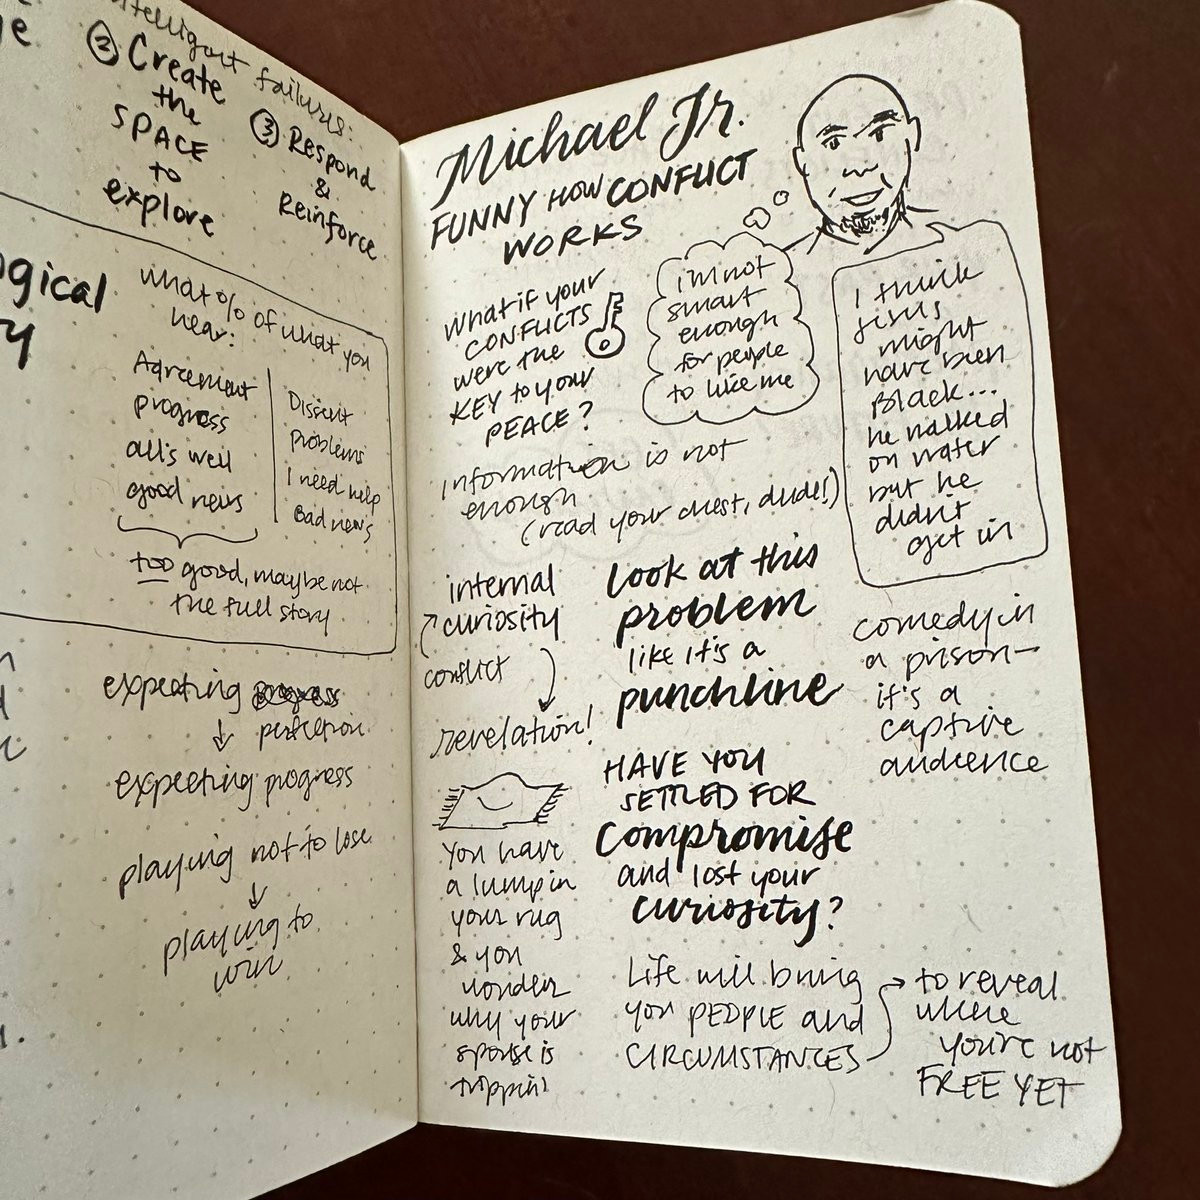 ge
intelligent failures:
② Create
the
SPACE
to
explore
③ Respond
&
Reinforce
ogical
y
what % of what you
hear:
Agreement
progress
all's well
good news
Dissent
problems
I need help
Bad news
too good, maybe not
the full story
expecting progress
perfection
expecting progress
playing not to lose
playing to
win
Michael Jr.
FUNNY HOW CONFLICT
WORKS
What if your
CONFLICTS
were the
KEY to your
PEACE?
i'm not
smart
enough
for people
to like me
I think
Jesus
might
have been
Black...
he walked
on water
but he
didn't
get in
information is not
enough
(read your chest, dude!)
internal
curiosity
conflict
revelation!
Look at this
problem
like it's a
punchline
comedy in
a prison—
it's a
captive
audience
You have
a lump in
your rug
& you
wonder
why your
spouse is
trippin'
HAVE YOU
SETTLED FOR
compromise
and lost your
curiosity?
Life will bring
you PEOPLE and
CIRCUMSTANCES
to reveal
where
you're not
FREE YET